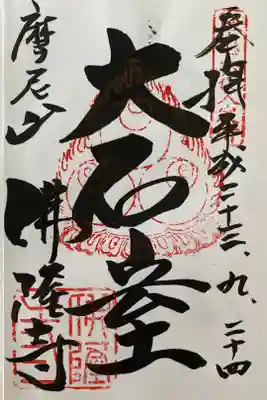 奉拝 平成二十三、九、二十四
大
摩尼山
佛隆寺